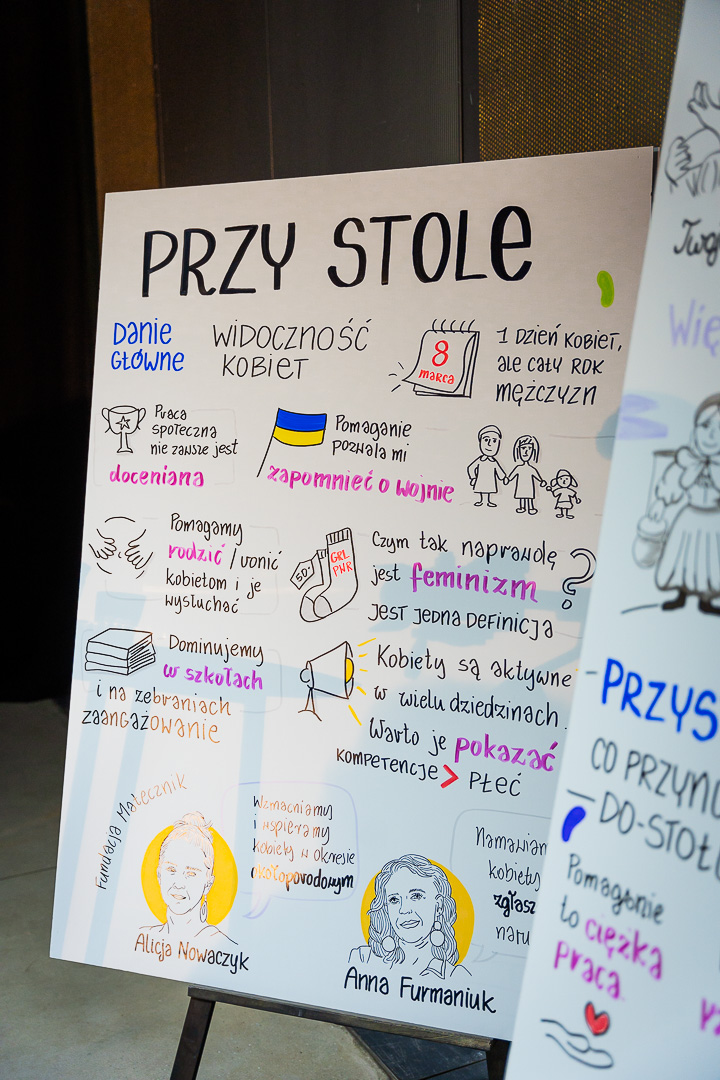 PRZY STOLE
DANIE
GŁÓWNE
WIDOCZNOŚĆ
KOBIET
8
MARCA
1 DZIEŃ KOBIET,
ale cały ROK
MĘŻCZYZN
Praca
społeczna
nie zawsze jest
doceniana
Pomaganie
pozwala mi
zapomnieć o wojnie
Pomagamy
rodzić / ronić
kobietom i je
wysłuchać
GRL
PWR
Czym tak naprawdę
jest feminizm ?
JEST JEDNA DEFINICJA
Dominujemy
w szkołach
i na zebraniach
zaangażowanie
Kobiety są aktywne
w wielu dziedzinach.
Warto je pokazać
KOMPETENCJE > PŁEĆ
Fundacja Matecznik
Wzmacniamy
i wspieramy
kobiety w okresie
okołoporodowym
Alicja Nowaczyk
Namawiam
kobiety
zgłasz
naru
Anna Furmaniuk
Więc
PRZYS
CO PRZYNO
DO-STOŁ
Pomaganie
to ciężka
praca